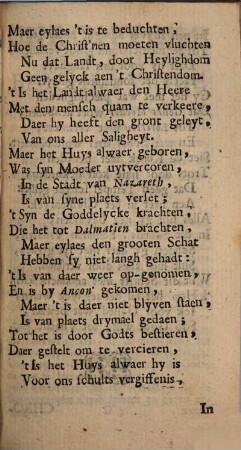 Maer eylaes 't is te beduchten,
Hoe de Christ'nen moeten vluchten
Nu dat Landt, door Heylighdom
Geen gelyck aen 't Christendom.
't Is het Landt alwaer den Heere
Met den mensch quam te verkeere,
Daer hy heeft den gront geleyt,
Van ons aller Saligheyt.
Maer het Huys alwaer geboren,
Was syn Moeder uytvercoren,
In de Stadt van Nazareth,
Is van syne plaets verset;
't Syn de Goddelycke krachten,
Die het tot Dalmatien brachten,
Maer eylaes den grooten Schat
Hebben sy niet langh gehadt:
't Is van daer weer op-genomen,
En is by Ancon' gekomen,
Maer 't is daer niet blyven staen,
Is van plaets drymael gedaen;
Tot het is door Godts bestieren,
Daer gestelt om te vercieren,
't Is het Huys alwaer hy is
Voor ons schults vergiffenis,
In